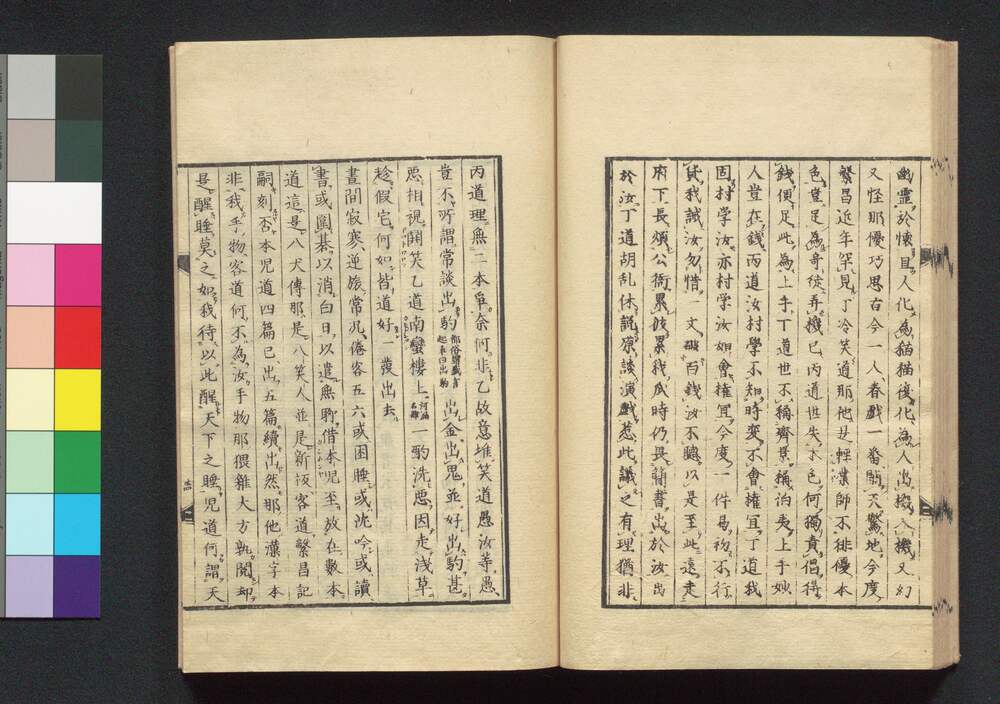 幽靈於懷目人化為猫猫復化為人出機入機又幻
又怪那優巧思古今一人春戲一番驚天驚地今度
繁昌近年罕見了冷笑道那他是輕業師不徘優本
色豈足為奇從弄機已丙道世失本色何獨責倡得
錢便足此為上手丁道世不稱齊景稱泊夷上手妙
人豈在錢丙道汝村學不知時変不會権冝丁道我
固村学汝亦村学汝如會権冝今度一件易初不行
貸我誠汝勿惜一文破百錢汝不聽以是至此遠走
府下長煩公衙累彼累我瓜時仍畏簡書出於汝出
於汝丁道胡乱休説原談演戲惹此議之有理猶非
丙道理無二本爭奈何非乙故意堆笑道愚汝等愚
豈不所謂常談出駒
出金出鬼並好出駒甚
悪相視開笑乙道南蠻樓上
一酌洗悪因走浅草
趁假宅何如皆道好一發出去
晝間寂寞逆旅常况倦客五六或困睡或沈吟或讀
書或圍棊以消白日以遣無聊借本児至放在數本
道這是八犬傳那是八笑人並是新板客道繁昌記
嗣刻否本児道四篇已出五篇續出然那他漢字本
非我手物客道何不為汝手物那猥雜大方孰閲却
是醒睡莫之如我待以此醒天下之睡児道何謂天